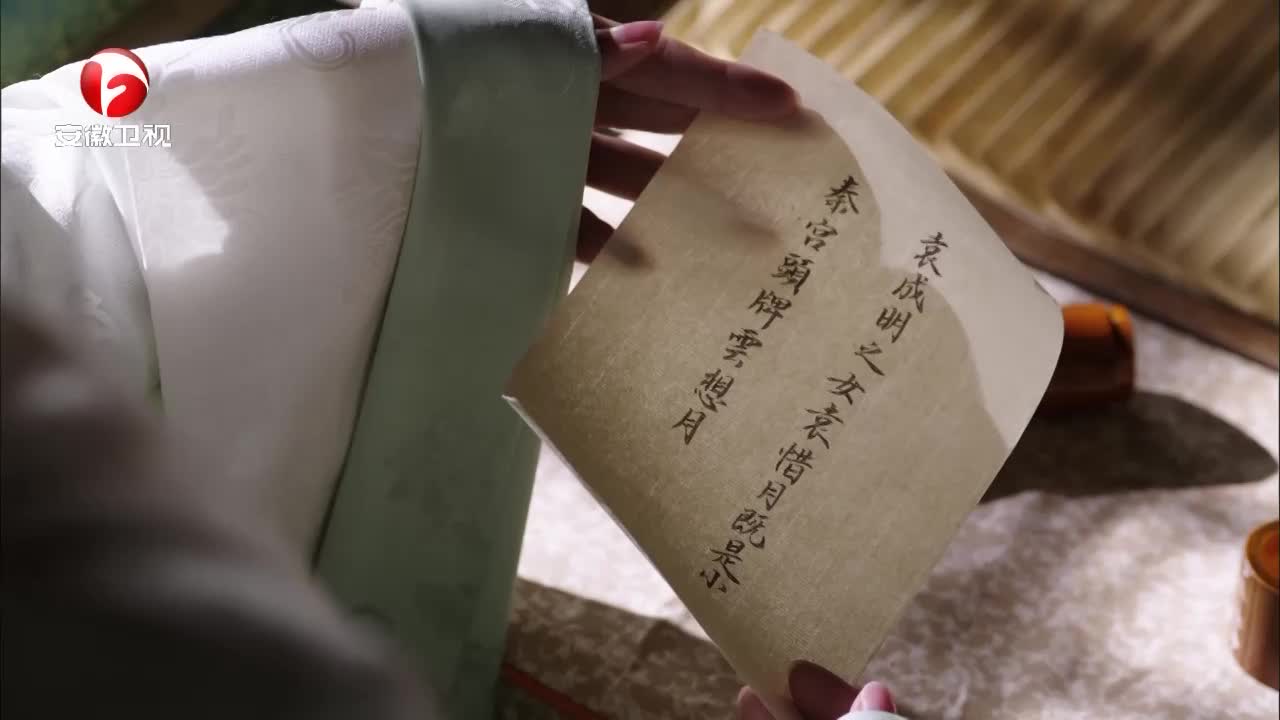 安徽卫视
袁成明之女袁惜月既是小
秦宫頭牌雲想月